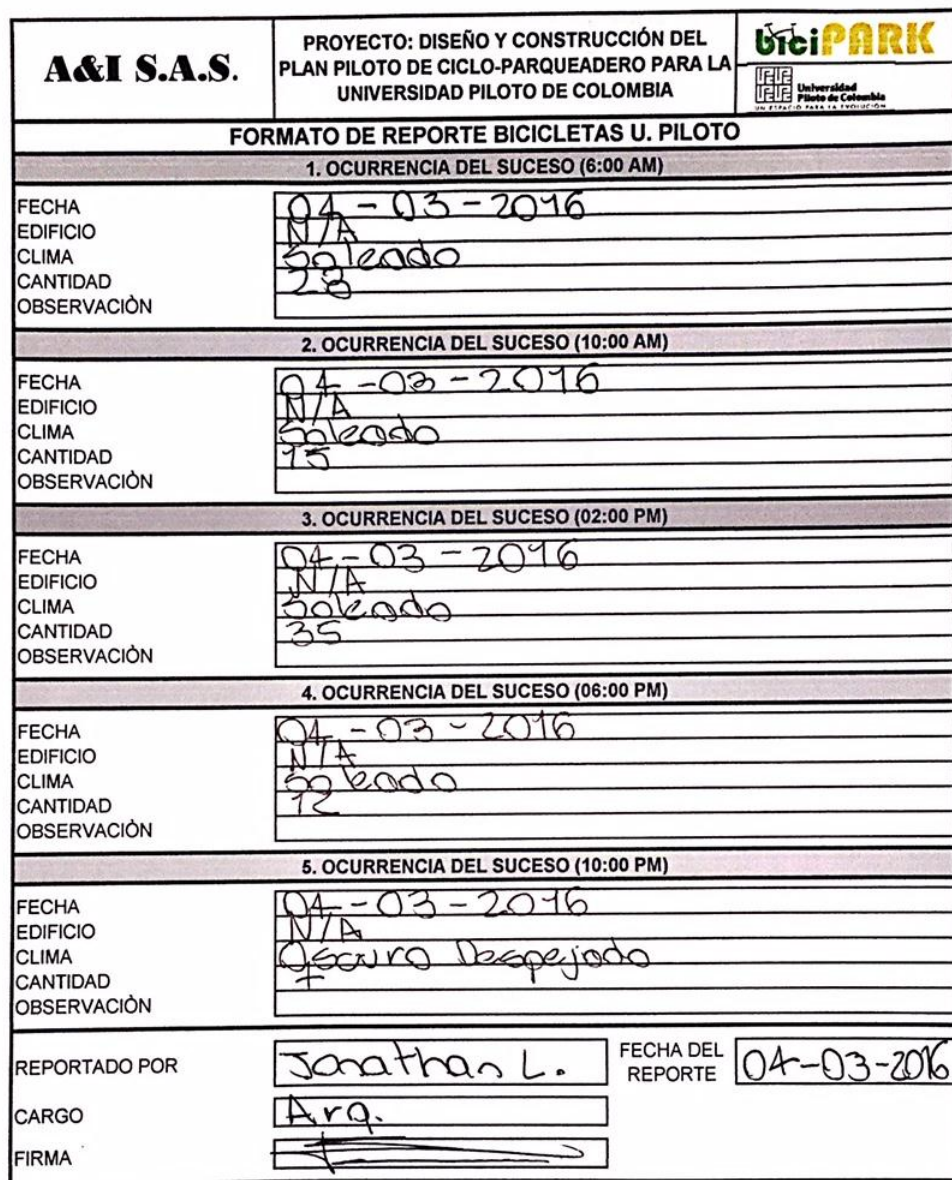 A&I S.A.S.
PROYECTO: DISEÑO Y CONSTRUCCIÓN DEL
PLAN PILOTO DE CICLO-PARQUEADERO PARA LA
UNIVERSIDAD PILOTO DE COLOMBIA
biciPARK
Universidad
Piloto de Colombia
UN ESPACIO PARA LA EVOLUCIÓN
FORMATO DE REPORTE BICICLETAS U. PILOTO
1. OCURRENCIA DEL SUCESO (6:00 AM)
FECHA 04-03-2016
EDIFICIO N/A
CLIMA Soleado
CANTIDAD 28
OBSERVACIÒN
2. OCURRENCIA DEL SUCESO (10:00 AM)
FECHA 04-03-2016
EDIFICIO N/A
CLIMA Soleado
CANTIDAD 15
OBSERVACIÒN
3. OCURRENCIA DEL SUCESO (02:00 PM)
FECHA 04-03-2016
EDIFICIO N/A
CLIMA Soleado
CANTIDAD 35
OBSERVACIÒN
4. OCURRENCIA DEL SUCESO (06:00 PM)
FECHA 04-03-2016
EDIFICIO N/A
CLIMA Soleado
CANTIDAD 12
OBSERVACIÒN
5. OCURRENCIA DEL SUCESO (10:00 PM)
FECHA 04-03-2016
EDIFICIO N/A
CLIMA Oscuro Despejado
CANTIDAD
OBSERVACIÒN
REPORTADO POR Jonathan L. FECHA DEL REPORTE 04-03-2016
CARGO Arq.
FIRMA